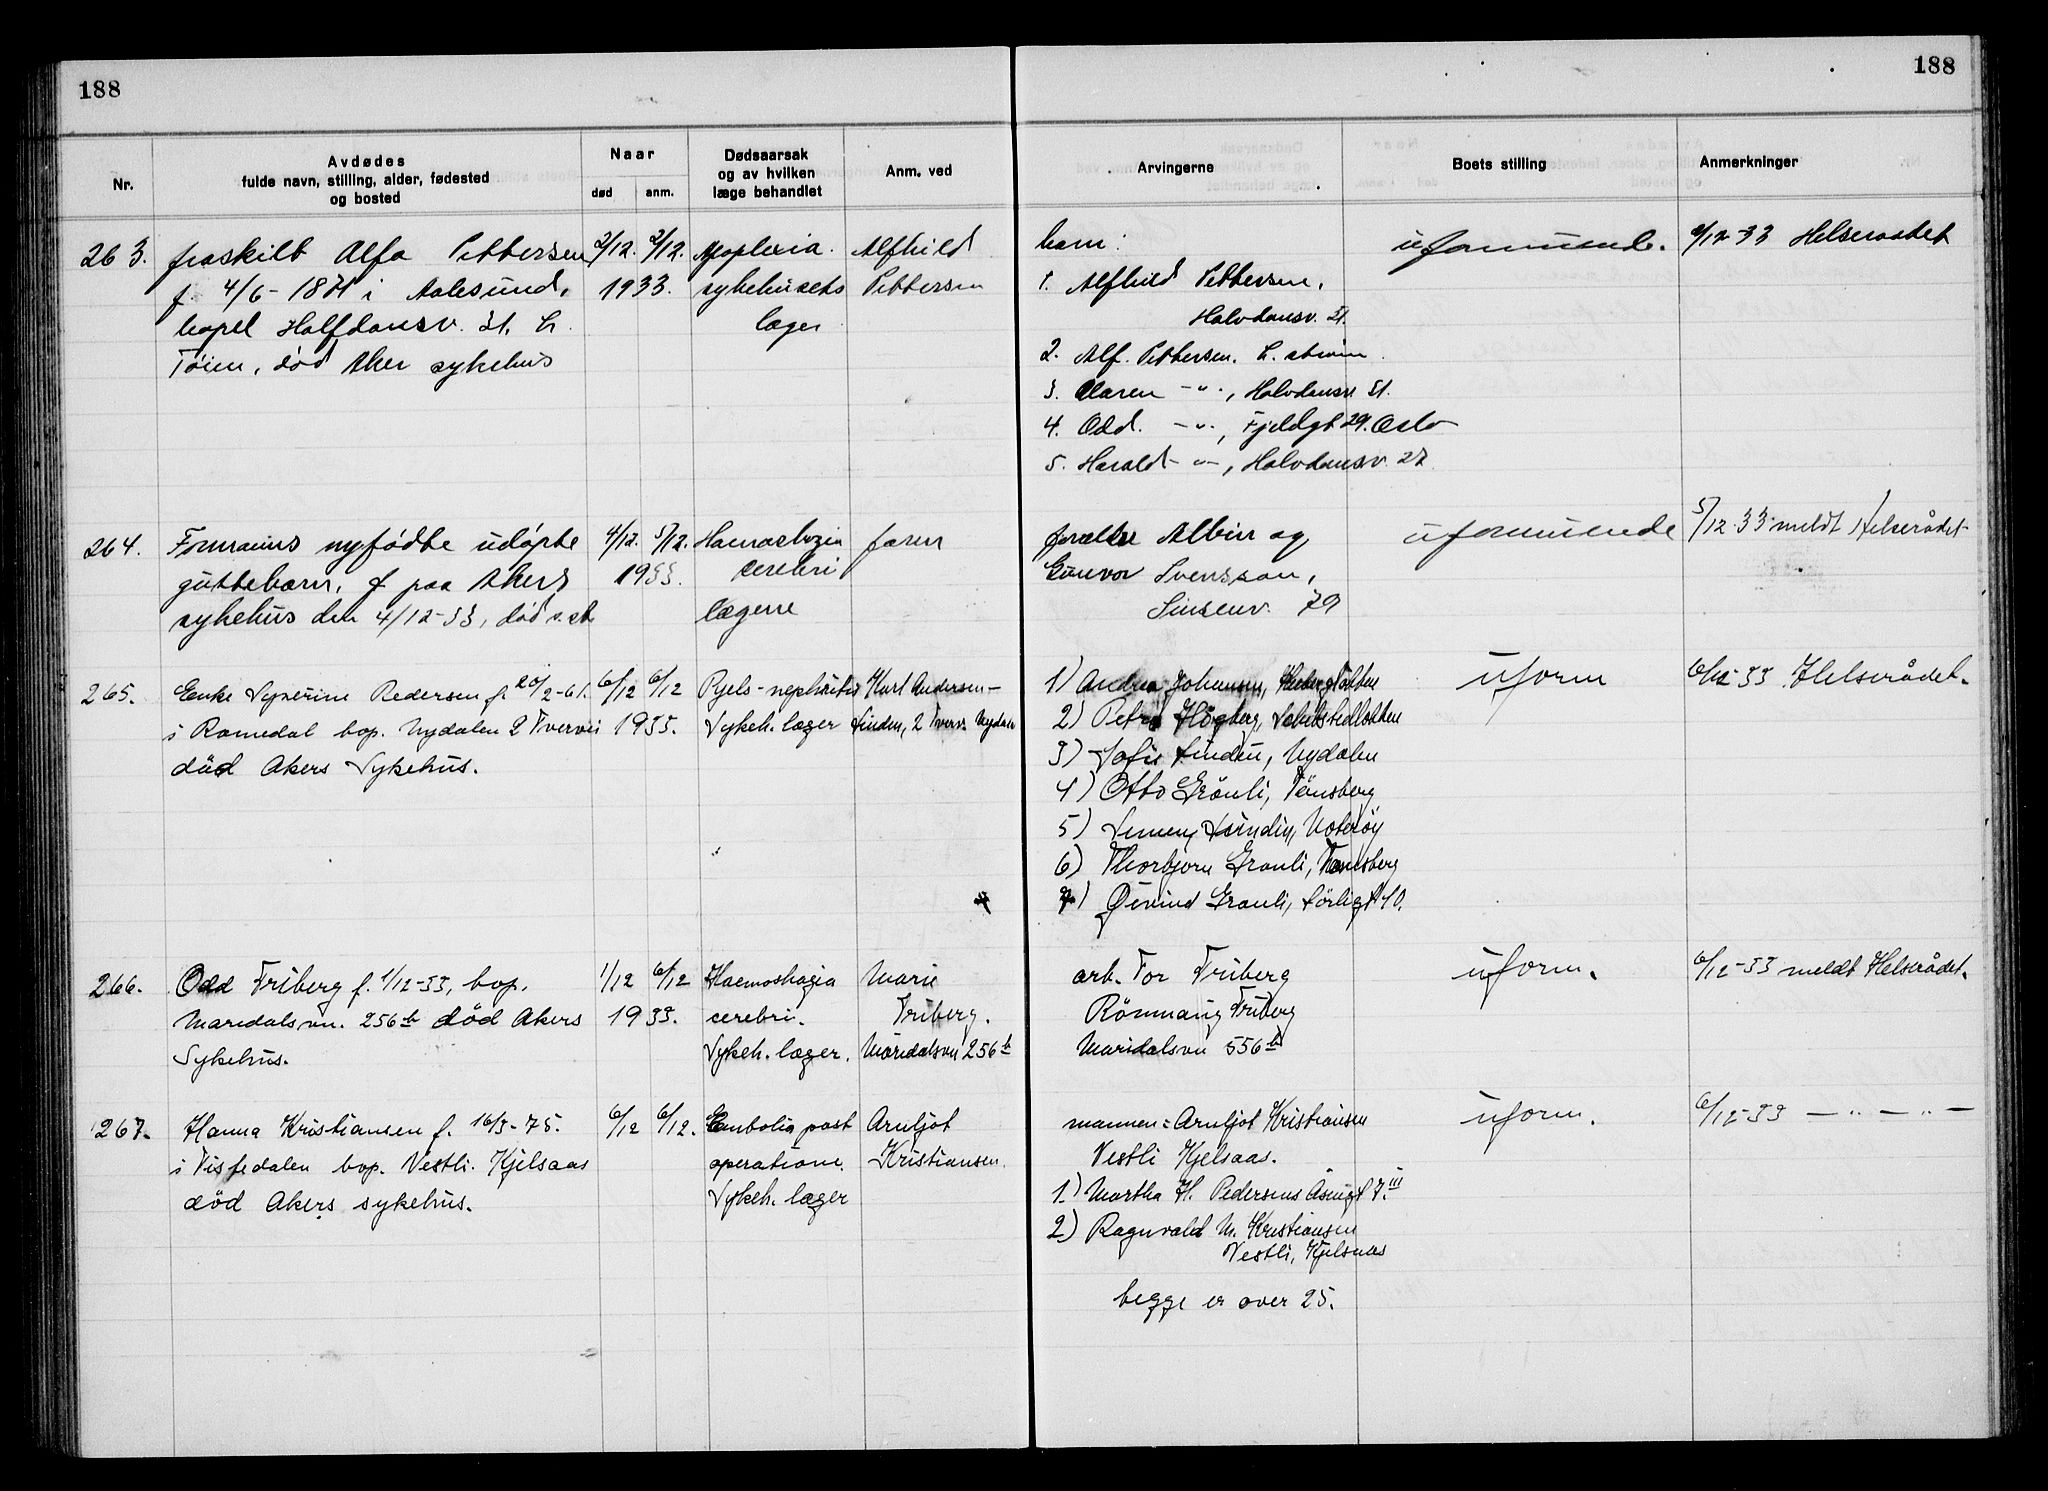 188
188
Nr.
Avdødes
fulde navn, stilling, alder, fødested
og bosted
Naar
død
anm.
Dødsaarsak
og av hvilken
læge behandlet
Anm. ved
Arvingerne
Boets stilling
Anmerkninger
263. fraskilt Alfa Pettersen 2/12. 2/12. Apoplexia. Alfhild
f. 4/6-1871 i Aalesund, 1933. sykehusets Pettersen
bopel Halfdansv. 31. b. læger
Tøien, død Aker sykehus
barn:
1. Alfhild Pettersen,
Halvdansv. 31.
2. Alf. Pettersen.
3. Karen -"-, Halvdansv 31.
4. Odd. -"-, Fjeldgt 29. Oslo
5. Harald -"-, Halvdansv. 27.
uformuende. 2/12-33 Helseraadet
264. nyfødte udøpte 4/12. 5/12. Haemorhagia faren
guttebarn, f paa Akers 1933. cerebri
sykehus den 4/12-33, død s. st. lægerne
forældre Albin og
Gunvor Svensson,
Sinsenv. 79
uformuende 5/12-33 meldt Helserådet
265. Enke Syverine Pedersen f. 20/2-61. 6/12 6/12 Pyelo-nephritis Kurt Andersen-
i Romedal bop. Nydalen 2 Tvervei 1933. Sykeh. læger Linden, 2 Tverv. Nydalen
død Akers Sykehus.
1) Andrea Johansen,
2) Petra Høgberg,
3) Sofie Linden, Nydalen
4) Otto Grønli, Tønsberg
5) Nøterøy
6) Thorbjørn Grønli, Tønsberg
7) Øivind Grønli, 10.
uform 6/12-33 Helserådet.
266. Odd Friberg f. 1/12-33, bop. 1/12 6/12 Haemorhagia Marie
Maridalsvn. 256 b død Akers 1933. cerebri. Friberg.
Sykehus. Sykeh. læger. Maridalsvn 256 b
arb. Tor Friberg
Rönnaug Friberg
Maridalsvn 556 b
uform. 6/12-33 meldt Helserådet.
267. Hanna Kristiansen f. 16/3-75. 6/12 6/12. Embolia post Arnljot
i Tistedalen bop. Vestli. Kjelsaas operatione. Kristiansen.
død Akers sykehus. Sykeh. læger
mannen = Arnljot Kristiansen
Vestli Kjelsaas.
1.) Martha H. Pedersen 7. III
2) Ragnvald M. Kristiansen
Vestli, Kjelsaas
begge er over 25.
uform. 6/12-33 - " - " -